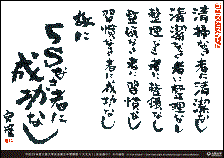 清掃なき者に清潔なし
清潔なき者に整理なし
整理なき者に整頓なし
整頓なき者に習慣なし
習慣なき者に成功なし
故に
5Sなき者に
成功なし